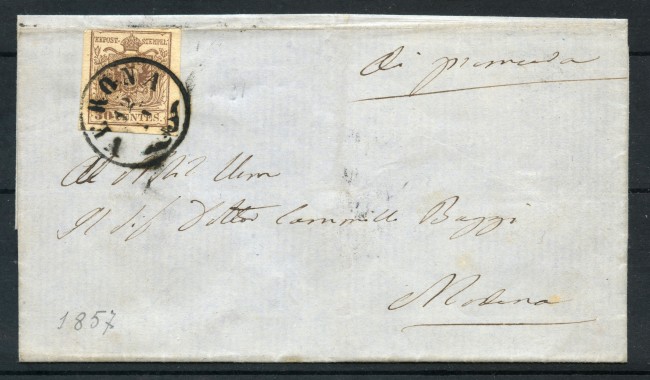 KKPOST-STEMPEL
30 CENTES.
VERONA
di premura
Al Nobil Uom
Il Sig Dottor Cammillo Baggi
Modena
1857